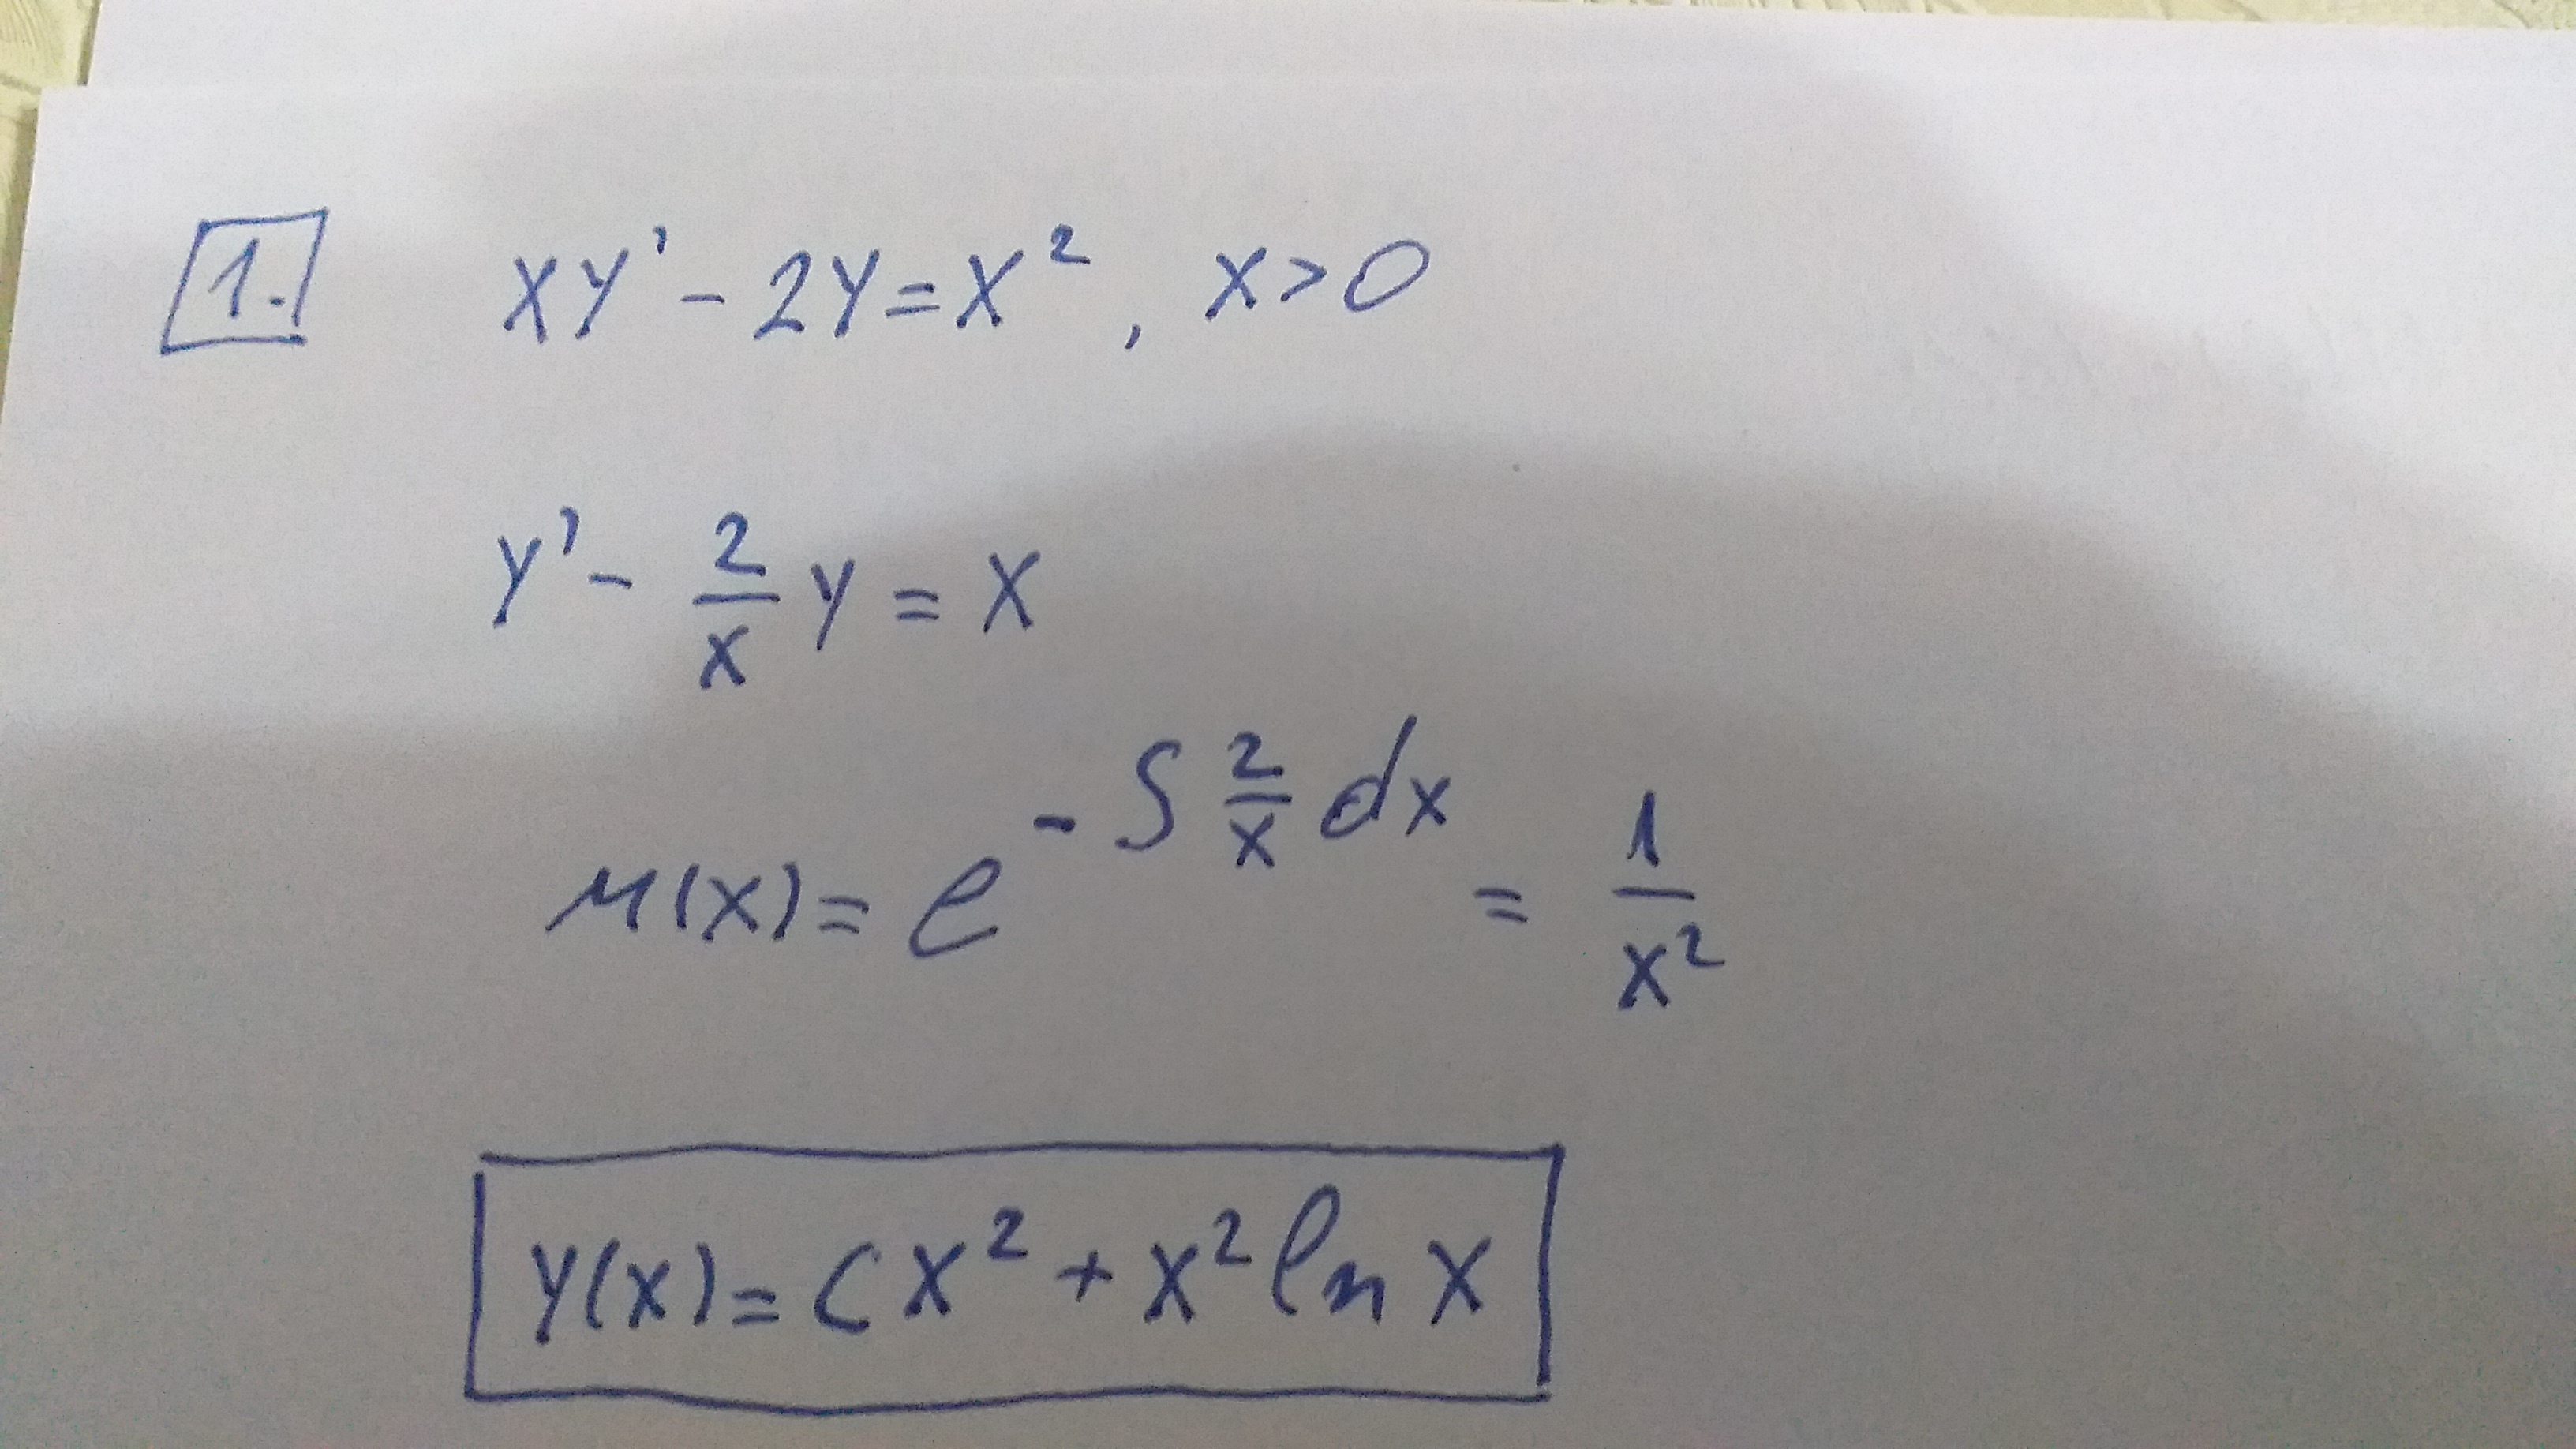 1. xy' - 2y = x², x > 0
y' - 2/x y = x
μ(x) = e^(-∫ 2/x dx) = 1/x²
y(x) = Cx² + x² ln x